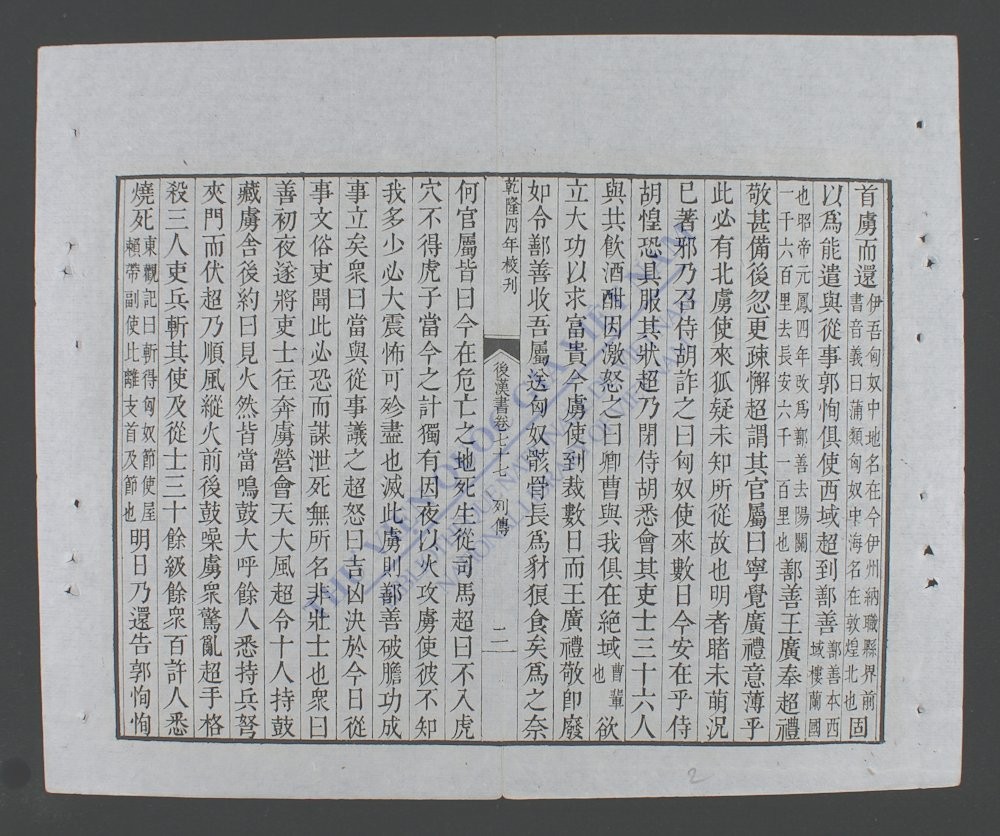 首虜而還伊吾匈奴中地名在今伊州納職縣界前書音義曰蒲類匈奴中海名在敦煌北也固
以爲能遣與從事郭恂俱使西域超到鄯善鄯善本西域樓蘭國
也昭帝元鳳四年改爲鄯善去陽關一千六百里去長安六千一百里也鄯善王廣奉超禮
敬甚備後忽更疎懈超謂其官屬曰寧覺廣禮意薄乎
此必有北虜使來狐疑未知所從故也明者睹未萌況
已著邪乃召侍胡詐之曰匈奴使來數日今安在乎侍
胡惶恐具服其狀超乃閉侍胡悉會其吏士三十六人
與共飲酒酣因激怒之曰卿曹與我俱在絕域曹輩也欲
立大功以求富貴今虜使到裁數日而王廣禮敬卽廢
如令鄯善收吾屬送匈奴骸骨長爲豺狼食矣爲之奈
乾隆四年校刋
後漢書卷七十七 列傳
二
何官屬皆曰今在危亡之地死生從司馬超曰不入虎
穴不得虎子當今之計獨有因夜以火攻虜使彼不知
我多少必大震怖可殄盡也滅此虜則鄯善破膽功成
事立矣衆曰當與從事議之超怒曰吉凶決於今日從
事文俗吏聞此必恐而謀泄死無所名非壯士也衆曰
善初夜遂將吏士往奔虜營會天大風超令十人持鼓
藏虜舍後約曰見火然皆當鳴鼓大呼餘人悉持兵弩
夾門而伏超乃順風縱火前後鼓噪虜衆驚亂超手格
殺三人吏兵斬其使及從士三十餘級餘衆百許人悉
燒死東觀記曰斬得匈奴節使屋賴帶副使比離支首及節也明日乃還告郭恂恂
2